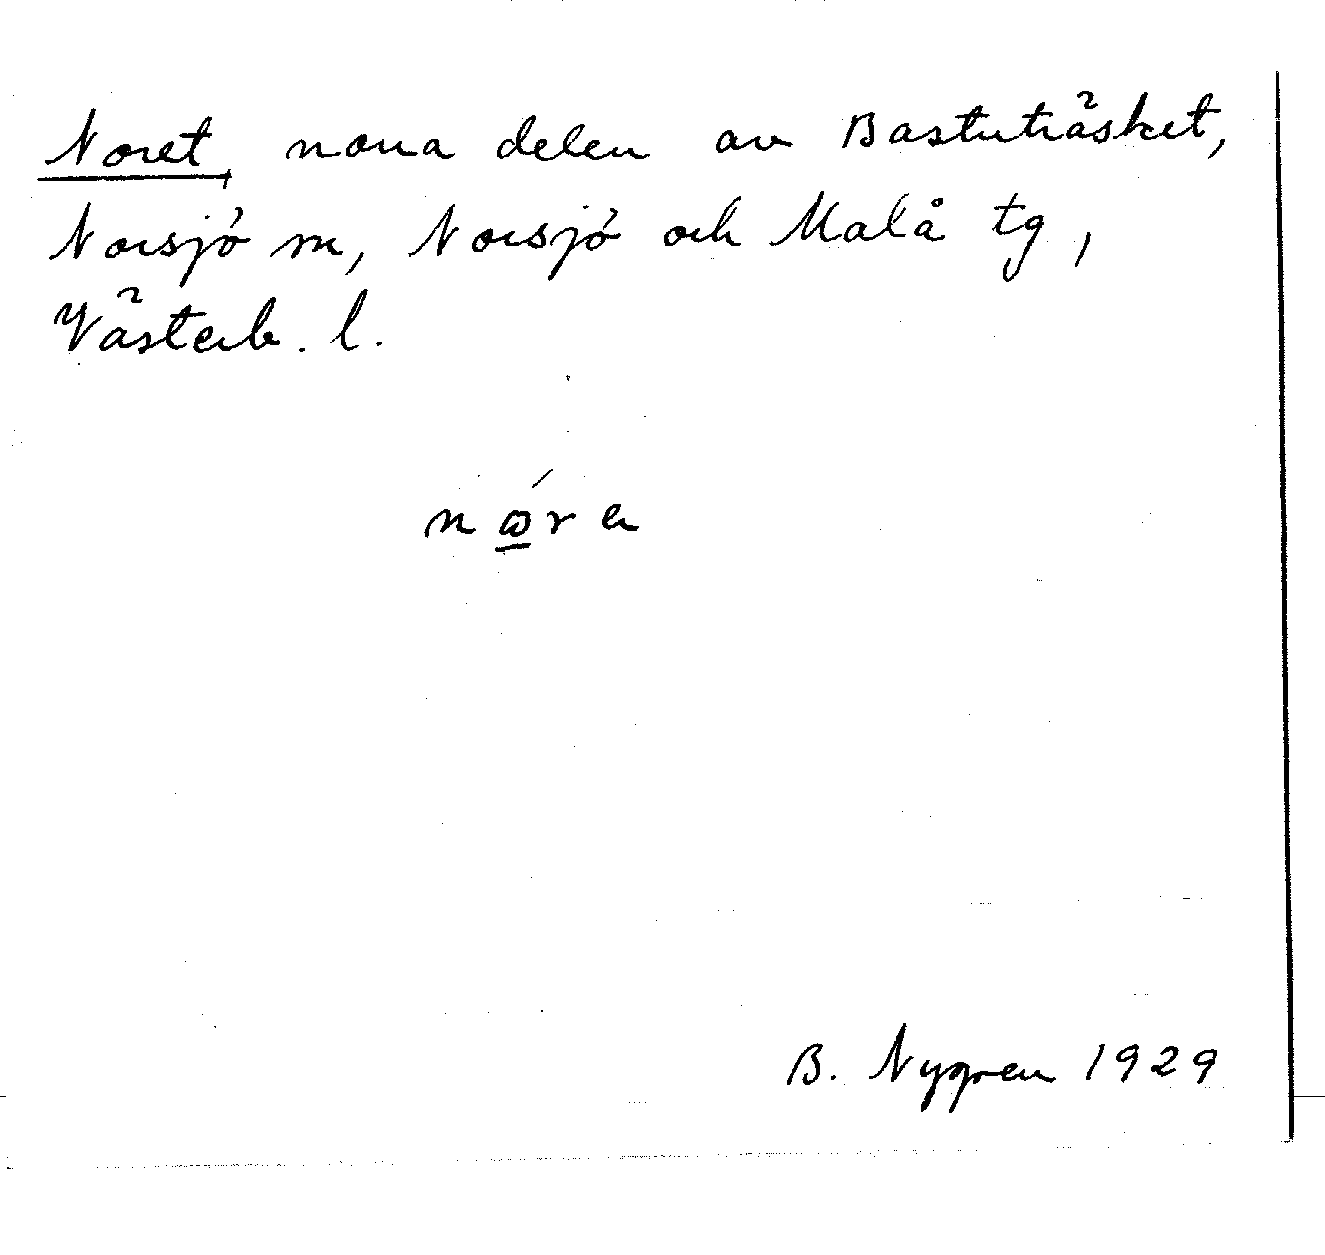 Noret, norra delen av Bastuträsket,
Norsjö sn, Norsjö och Malå tg,
Västerb. l.
nώ̱re
B. Nygren 1929